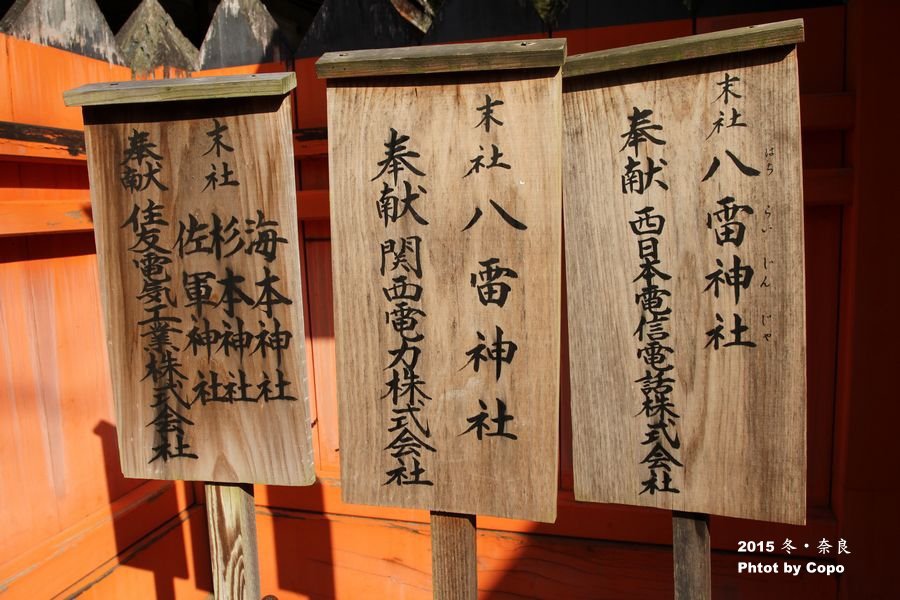 末社
海本神社
杉本神社
佐軍神社
奉献 住友電気工業株式会社
末社 八雷神社
奉献 関西電力株式会社
末社 八雷神社
はち らい じん じゃ
奉献 西日本電信電話株式会社
2015 冬・奈良
Phtot by Copo